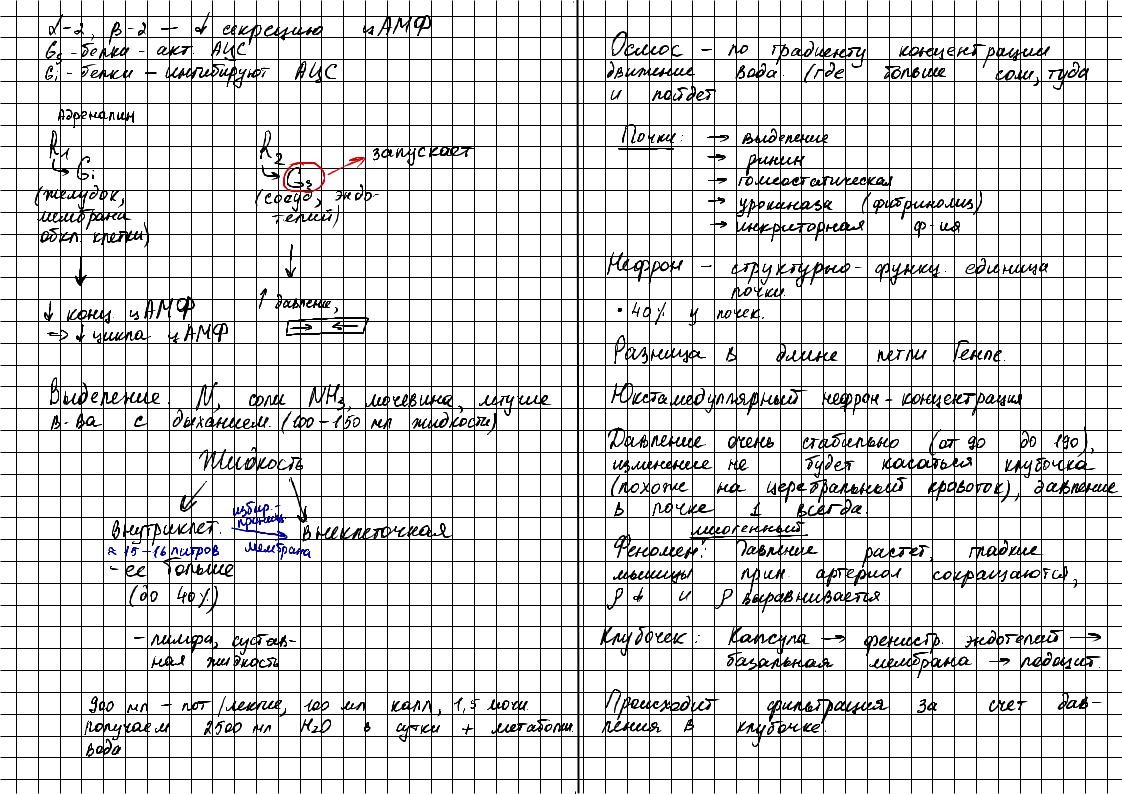 α-2, β-2 — ↓ секрецию цАМФ
Gs - белка - акт. АЦС
Gi - белки — ингибируют АЦС
Адреналин
R1
↳ Gi
(желудок,
мембрана
обкл. клетки)
↓ конц. цАМФ
=> ↓ цикла цАМФ
R2
↳ Gs → запускает
(сосуд, эндо-
телий)
↑ давление,
→ ←
Выделение. N, соли NH3, мочевина, летучие
в-ва с дыханием (100-150 мл жидкости)
Жидкость
Внутриклет.
≈ 15-16 литров
- ее больше
(до 40%)
избир-
прониц.
мембрана
Внеклеточная
- лимфа, сустав-
ная жидкость
900 мл — пот/легкие, 100 мл калл, 1,5 мочи
получаем 2500 мл H2O в сутки + метаболич.
вода
Осмос — по градиенту концентрации
движение вода. (где больше соли, туда
и пойдет
Почки: → выделение
→ ринин
→ гомеостатическая
→ уроканаза (фибринолиз)
→ инкриторная ф-ия
Нефрон — структурно-функц. единица
почки.
· 40% у почек.
Разница в длине петли Генле.
Юкстамедуллярный нефрон - концентрация
Давление очень стабильно (от 90 до 190),
изменение не будет касаться клубочка
(похоже на церебральный кровоток), давление
в почке 1 всегда.
миогенный
Феномен: Давление растет, гладкие
мышцы прин. артериол сокращаются,
ρ↓ и ρ выравнивается
Клубочек: Капсула → фенистр. эндотелий →
базальная мембрана → подоцит.
Происходит фильтрация за счет дав-
ления в клубочке.